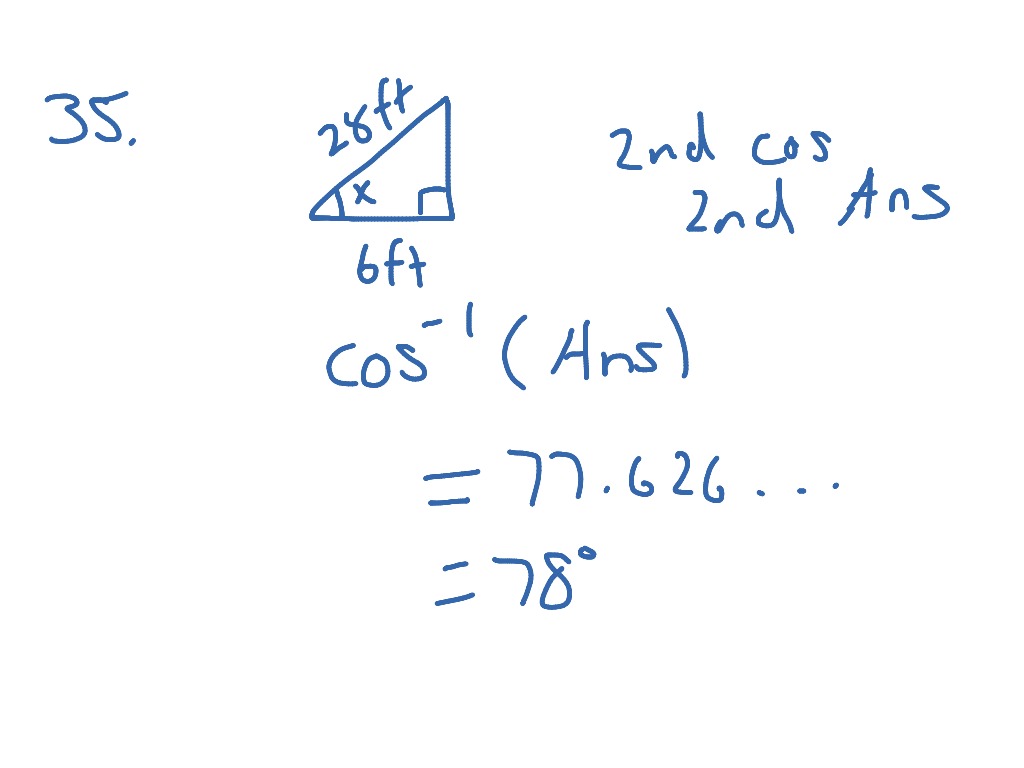 35.
28ft
x
6ft
2nd cos
2nd Ans
cos⁻¹ (Ans)
= 77.626 ...
= 78°